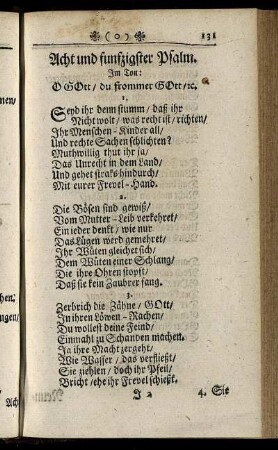 (0) 131
Acht und funfzigster Psalm.
Im Ton:
O GOtt/ du frommer GOtt/ ꝛc.
1.
Seyd ihr denn stumm/ daß ihr
Nicht wolt/ was recht ist/ richten/
Ihr Menschen-Kinder all/
Und rechte Sachen schlichten?
Muthwillig thut ihr ja/
Das Unrecht in dem Land/
Und gehet straks hindurch/
Mit eurer Frevel-Hand.
2.
Die Bösen sind gewiß/
Vom Mutter-Leib verkehret/
Ein ieder denkt/ wie nur
Das Lügen werd gemehret/
Ihr Wüten gleichet sich/
Dem Wüten einer Schlang/
Die ihre Ohren stopft/
Daß sie kein Zaubrer fang.
3.
Zerbrich die Zähne/ GOtt/
In ihren Löwen-Rachen/
Du wollest deine Feind/
Einmahl zu Schanden machen.
Ja ihre Macht zergeht/
Wie Wasser/ das verfließt/
Sie ziehlen/ doch ihr Pfeil/
Bricht/ ehe ihr Frevel schießt.
J 2 4. Sie